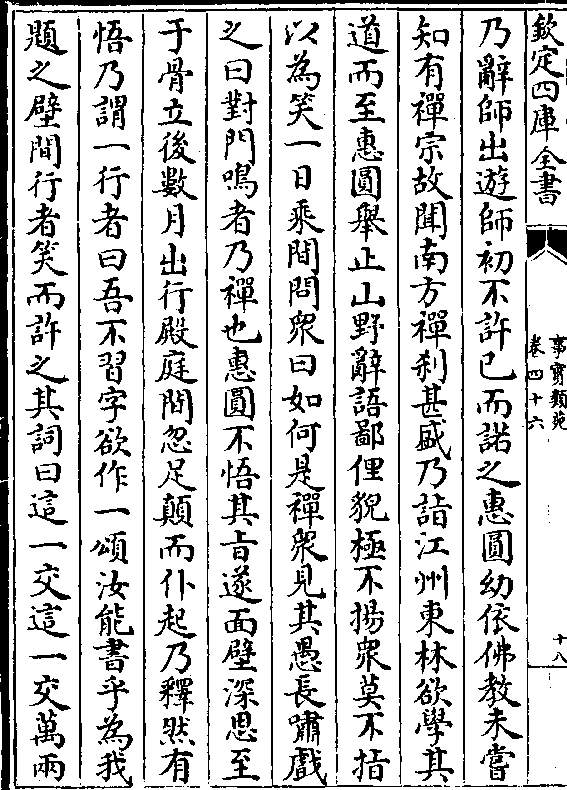 欽定四庫全書
事實類苑
卷四十六
十八
乃辭師出遊師初不許已而諾之惠圓幼依佛教未嘗
知有禪宗故聞南方禪刹甚盛乃詣江州東林欲學其
道而至惠圓舉止山野辭語鄙俚貌極不揚衆莫不指
以為笑一日乘間問衆曰如何是禪衆見其愚長嘯戲
之曰對門鳴者乃禪也惠圓不悟其旨遂面壁深思至
于骨立後數月出行殿庭間忽足顛而仆起乃釋然有
悟乃謂一行者曰吾不習字欲作一頌汝能書乎為我
題之壁間行者笑而許之其詞曰這一交這一交萬兩